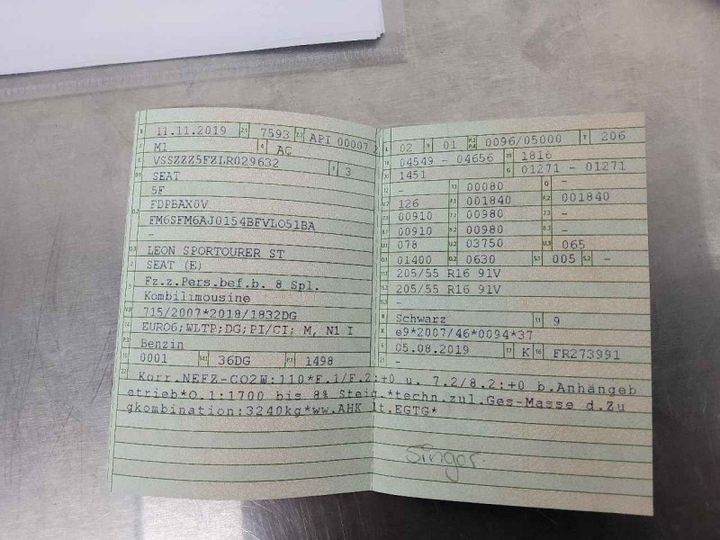 11.11.2019 7593 API 00007 2
M1 AC
VSSZZZ5FZLR029632 3
SEAT
5F
FDPBAX0V
FM6SFM6AJ0154BFVLO51BA
-
LEON SPORTOURER ST
SEAT (E)
Fz.z.Pers.bef.b. 8 Spl.
Kombilimousine
715/2007*2018/1832DG
EURO6;WLTP;DG;PI/CI; M, N1 I
Benzin
0001 36DG 1498
02 01 0096/05000 206
04549 - 04656 1816
1451 01271 - 01271
- 00080 -
126 001840 001840
00910 00980 -
00910 00980 -
078 03750 065
01400 0630 005 -
205/55 R16 91V
205/55 R16 91V
-
Schwarz 9
e9*2007/46*0094*37
05.08.2019 K FR273991
Korr.NEFZ-CO2W:110*F.1/F.2:+0 u. 7.2/8.2:+0 b.Anhängeb
etrieb*O.1:1700 bis 8% Steig.*techn.zul.Ges-Masse d.Zu
gkombination:3240kg*ww.AHK lt.EGTG*